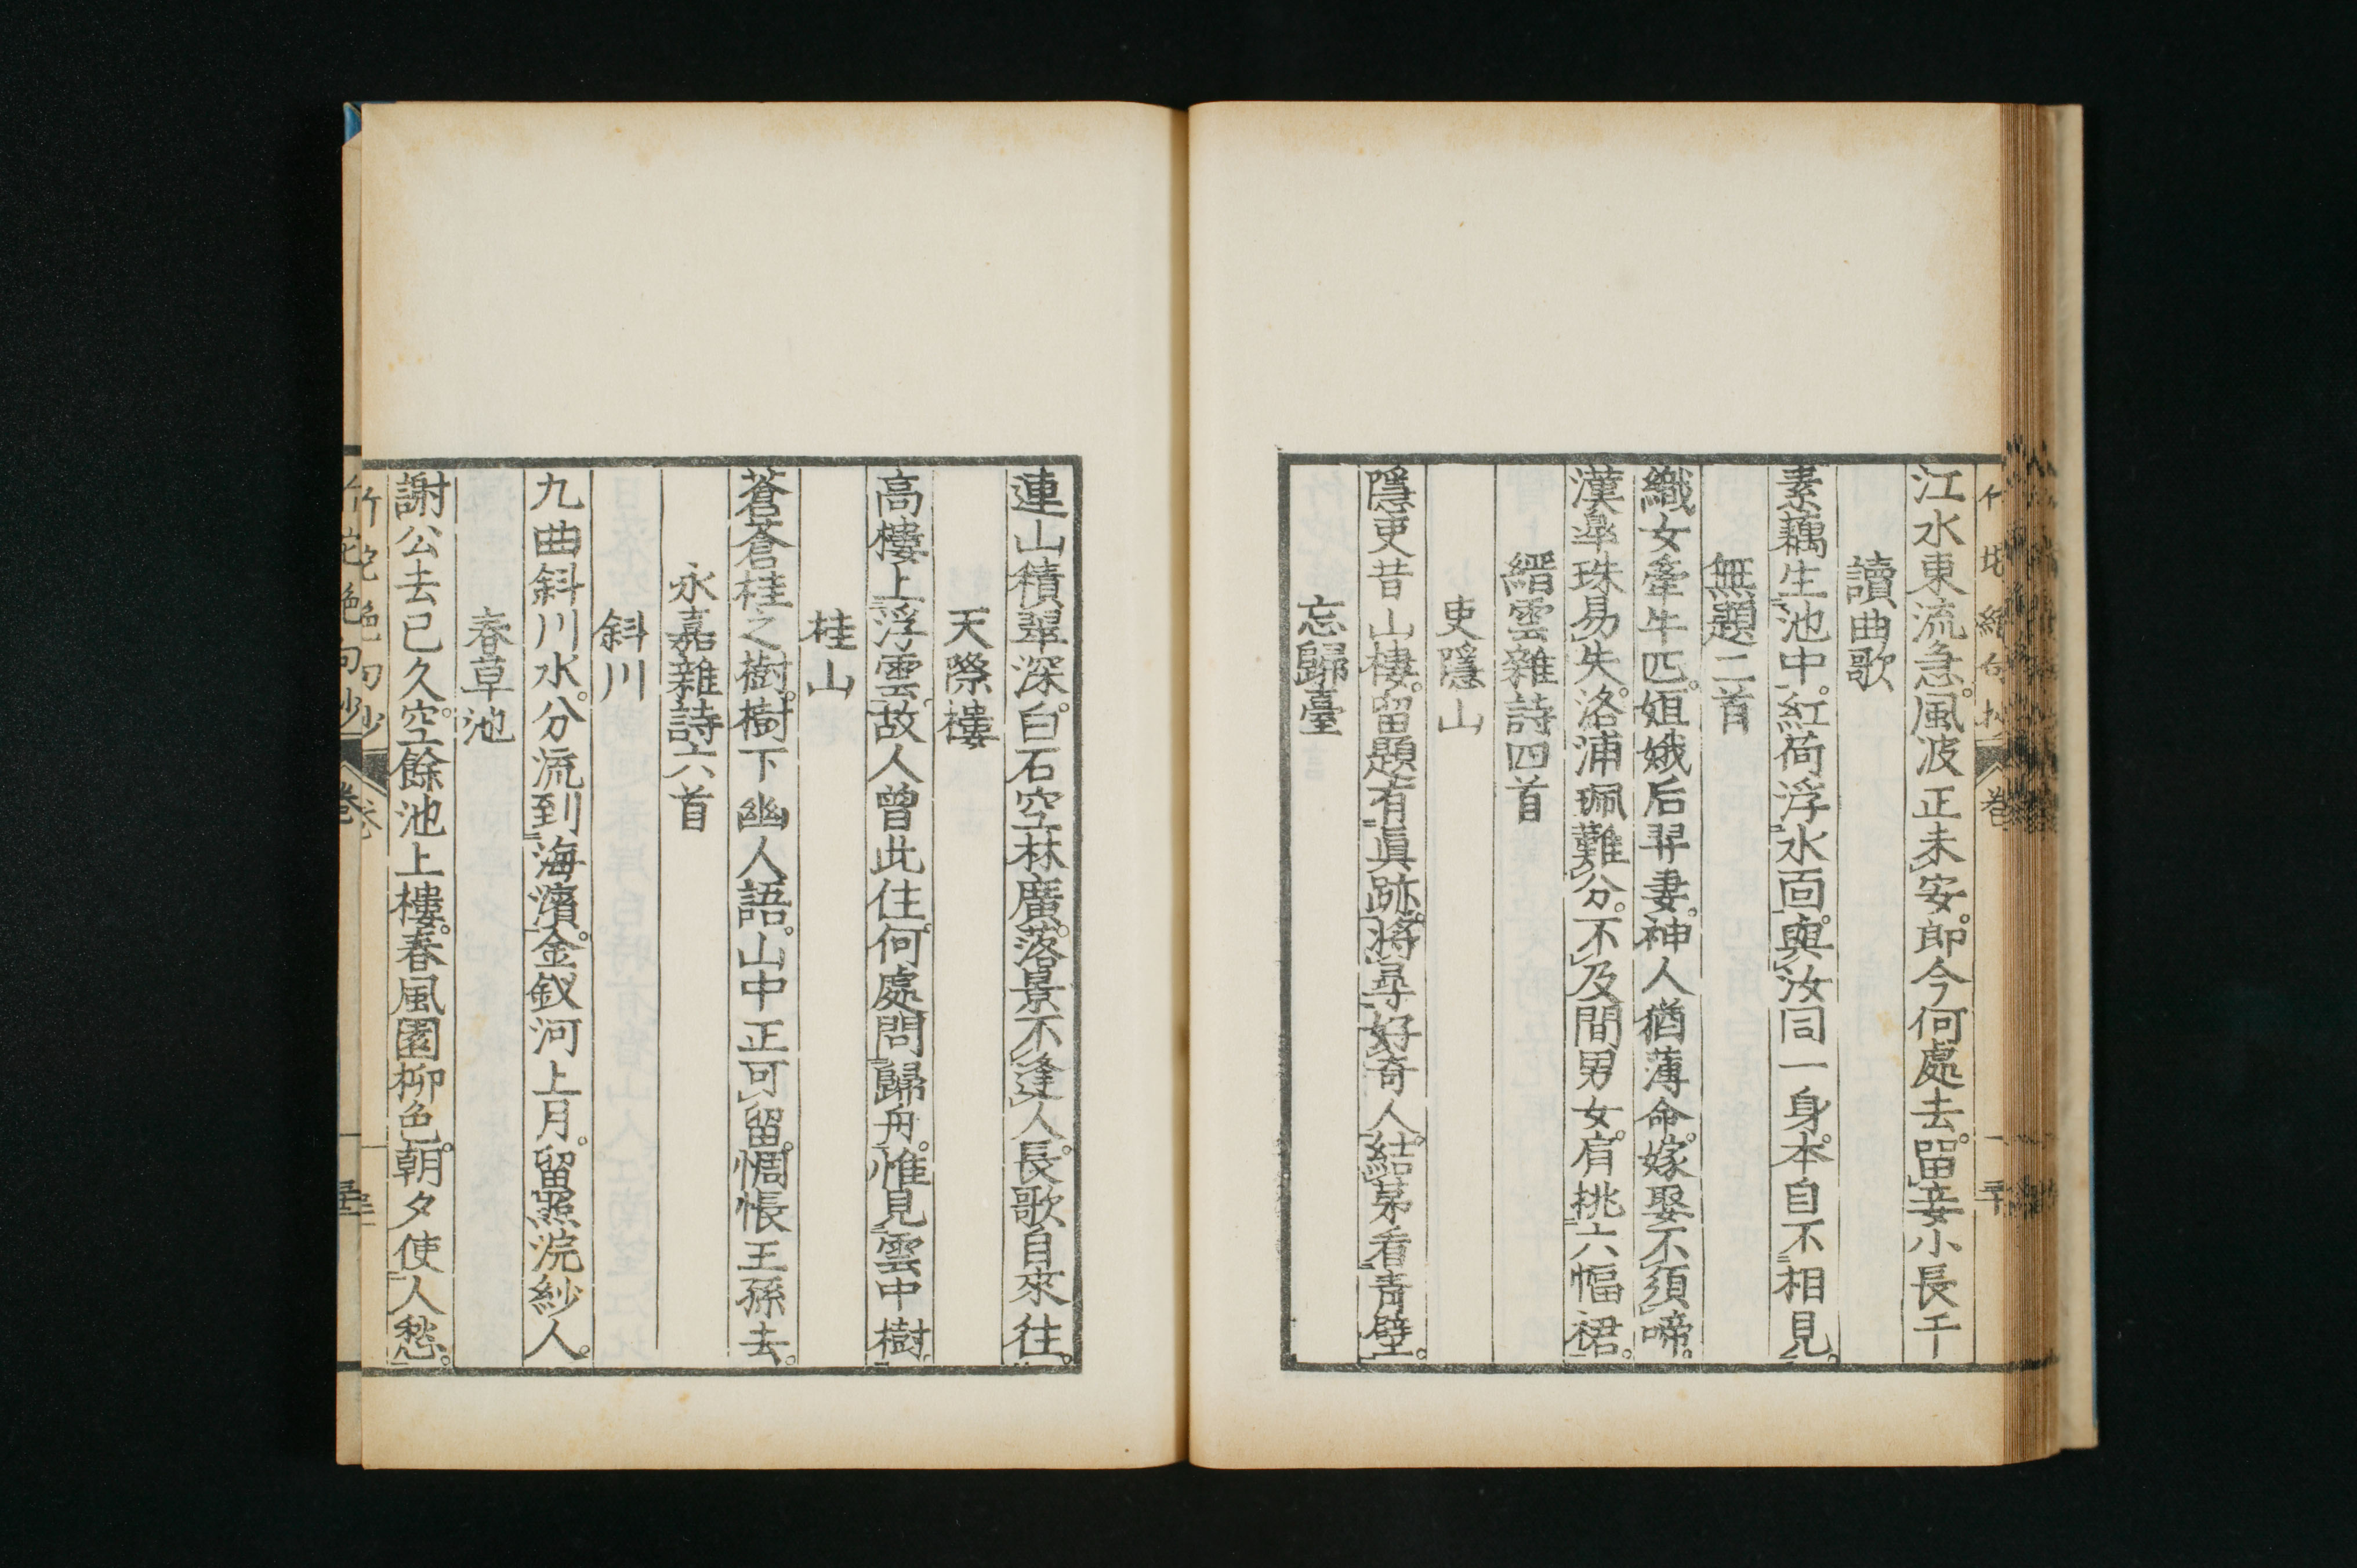 江水東流急。風波正未安。郎今何處去。留妾小長干
讀曲歌
素藕生池中。紅荷浮水面。與汝同一身。本自不相見。
無題二首
織女牽牛匹。姮娥后羿妻。神人猶薄命。嫁娶不須啼。
漢皐珠易失。洛浦珮難分。不及閒男女。肩挑六幅裙。
縉雲雜詩四首
吏隱山
隱吏昔山棲。留題有眞跡。將尋好奇人。結茅看青壁。
忘歸臺
連山積翠深。白石空林廣。落景不逢人。長歌自來往。
天際樓
高樓上浮雲。故人曾此住。何處問歸舟。惟見雲中樹
桂山
蒼蒼桂之樹。樹下幽人語。山中正可留。惆悵王孫去。
永嘉雜詩六首
斜川
九曲斜川水。分流到海濱。金釵河上月。留照浣紗人。
春草池
謝公去已久。空餘池上樓。春風園柳色。朝夕使人愁。